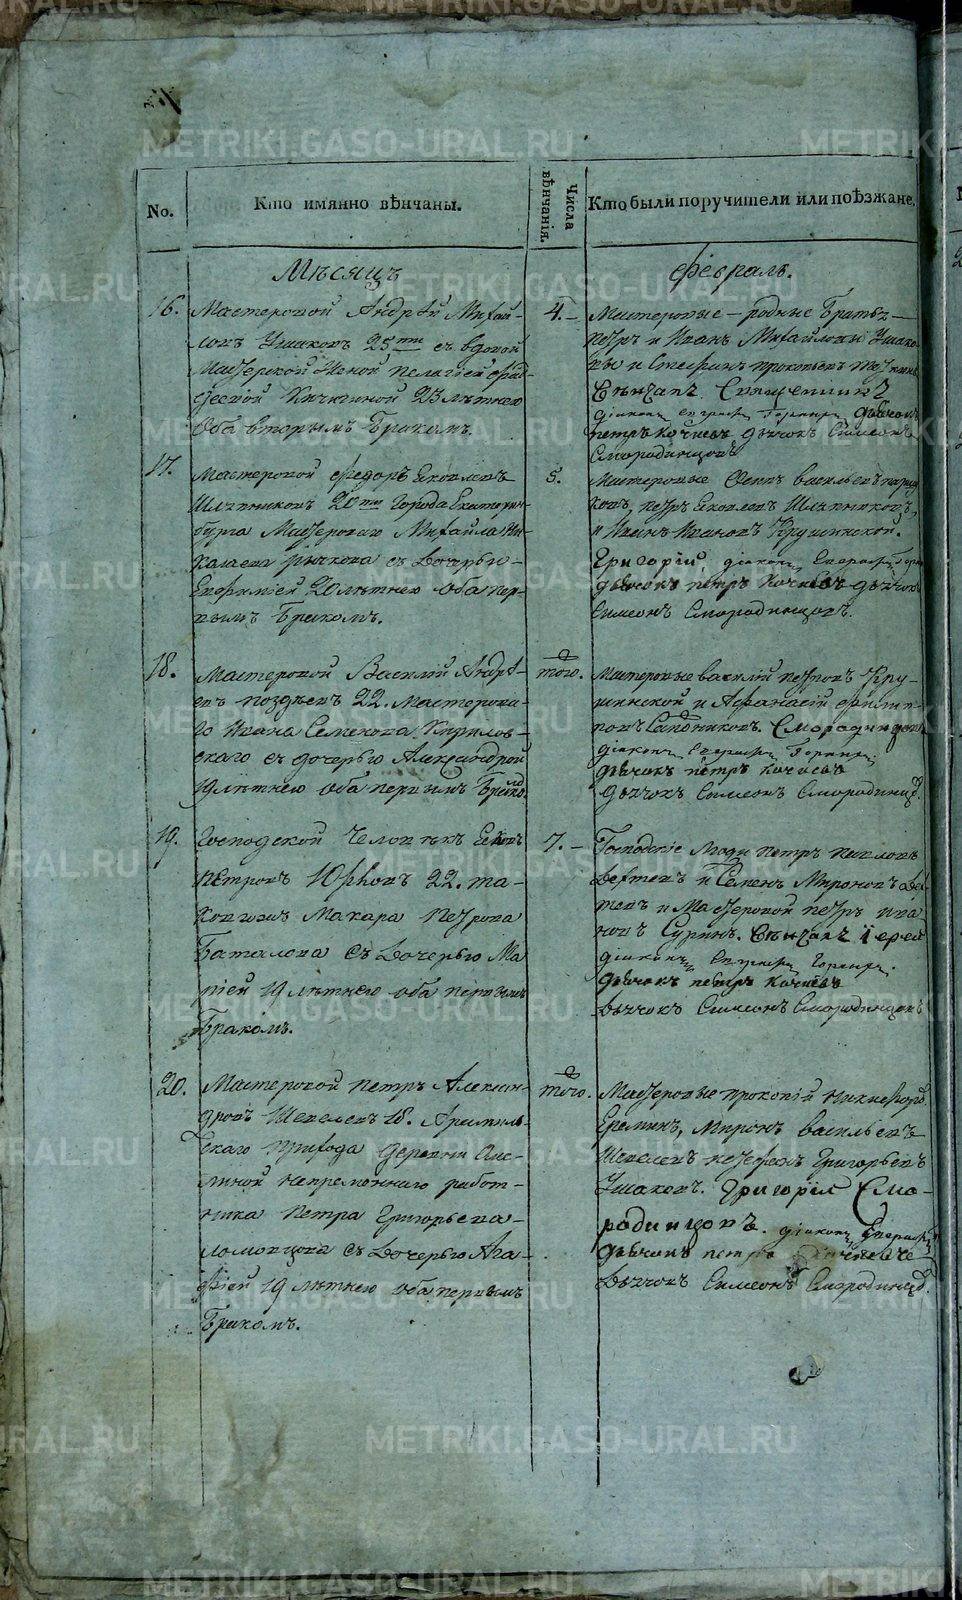 No.
Кто имянно вѣнчаны.
Числа вѣнчанія.
Кто были поручители или поѣзжане.
Мѣсяцъ
февраль.
16.
Мастеровой Андрѣй Михай-
ловъ Ушаковъ 25ти съ вдовой
Мастерской Женой Пелагіей
Кичигиной 23 лѣтнею
Оба вторымъ Бракомъ.
4.
Мастеровые родные Братья
Петръ и Иванъ Михайловы Ушако-
вы и Стефанъ Прокопьевъ
Вѣнчалъ Священникъ
діаконъ Горнинъ дьячокъ
Петръ Кочневъ дьячокъ Симеонъ
Смородинцовъ
17.
Мастеровой Федоръ Яковлевъ
Шляпниковъ 20ти Города Екатерин-
бурга Мастероваго Михайла Ни-
колаева Рычкова съ дочерью
Евфимией 20 лѣтнею оба пер-
вымъ Бракомъ.
5.
Мастеровые Васильевъ
Петръ Яковлевъ Шляпниковъ,
и Иванъ Ивановъ Крушинской.
Григорій, діаконъ
дьячокъ Петръ Кочневъ дьячокъ
Симеонъ Смородинцовъ.
18.
Мастеровой Василій Андрѣ-
евъ Поздѣевъ 22. Мастерова-
го Ивана Семенова Кирилов-
скаго съ дочерью Александрой
19 лѣтнею оба первымъ Бракомъ.
того.
Мастеровые Василій Петровъ Кру-
шинской и Афанасій Филип-
повъ Санниковъ. Смородинцовъ
діаконъ Горнинъ
дьячокъ Петръ Кочневъ
дьячокъ Симеонъ Смородинцов.
19.
Господской Человѣкъ Яковъ
Петровъ Юрковъ 22. та-
ковогожъ Макара Петрова
Баталова съ дочерью Ма-
ріей 19 лѣтнею оба первымъ
Бракомъ.
7.
Господскіе люди Петръ Павловъ
и Семенъ Мироновъ
и Мастеровой Петръ Ива-
новъ Суринъ. Вѣнчалъ Іерей
діаконъ Горнинъ.
дьячокъ Петръ Кочневъ
дьячокъ Симеонъ Смородинцовъ
20.
Мастеровой Петръ Алексан-
дровъ Шевелевъ 18. Арамиль-
скаго прихода деревни
непременнаго работ-
ника Петра Григорьева
Ломовцова съ дочерью Ага-
фіей 19 лѣтнею оба первымъ
Бракомъ.
того.
Мастеровые Прокопій Никифоров
Ереминъ, Миронъ Васильевъ
Шевелевъ Григорьевъ
Ушаковъ. Григорій Смо-
родинцовъ. діаконъ
дьячокъ Петръ
дьячокъ Симеонъ Смородинцов.
METRIKI.GASO-URAL.RU